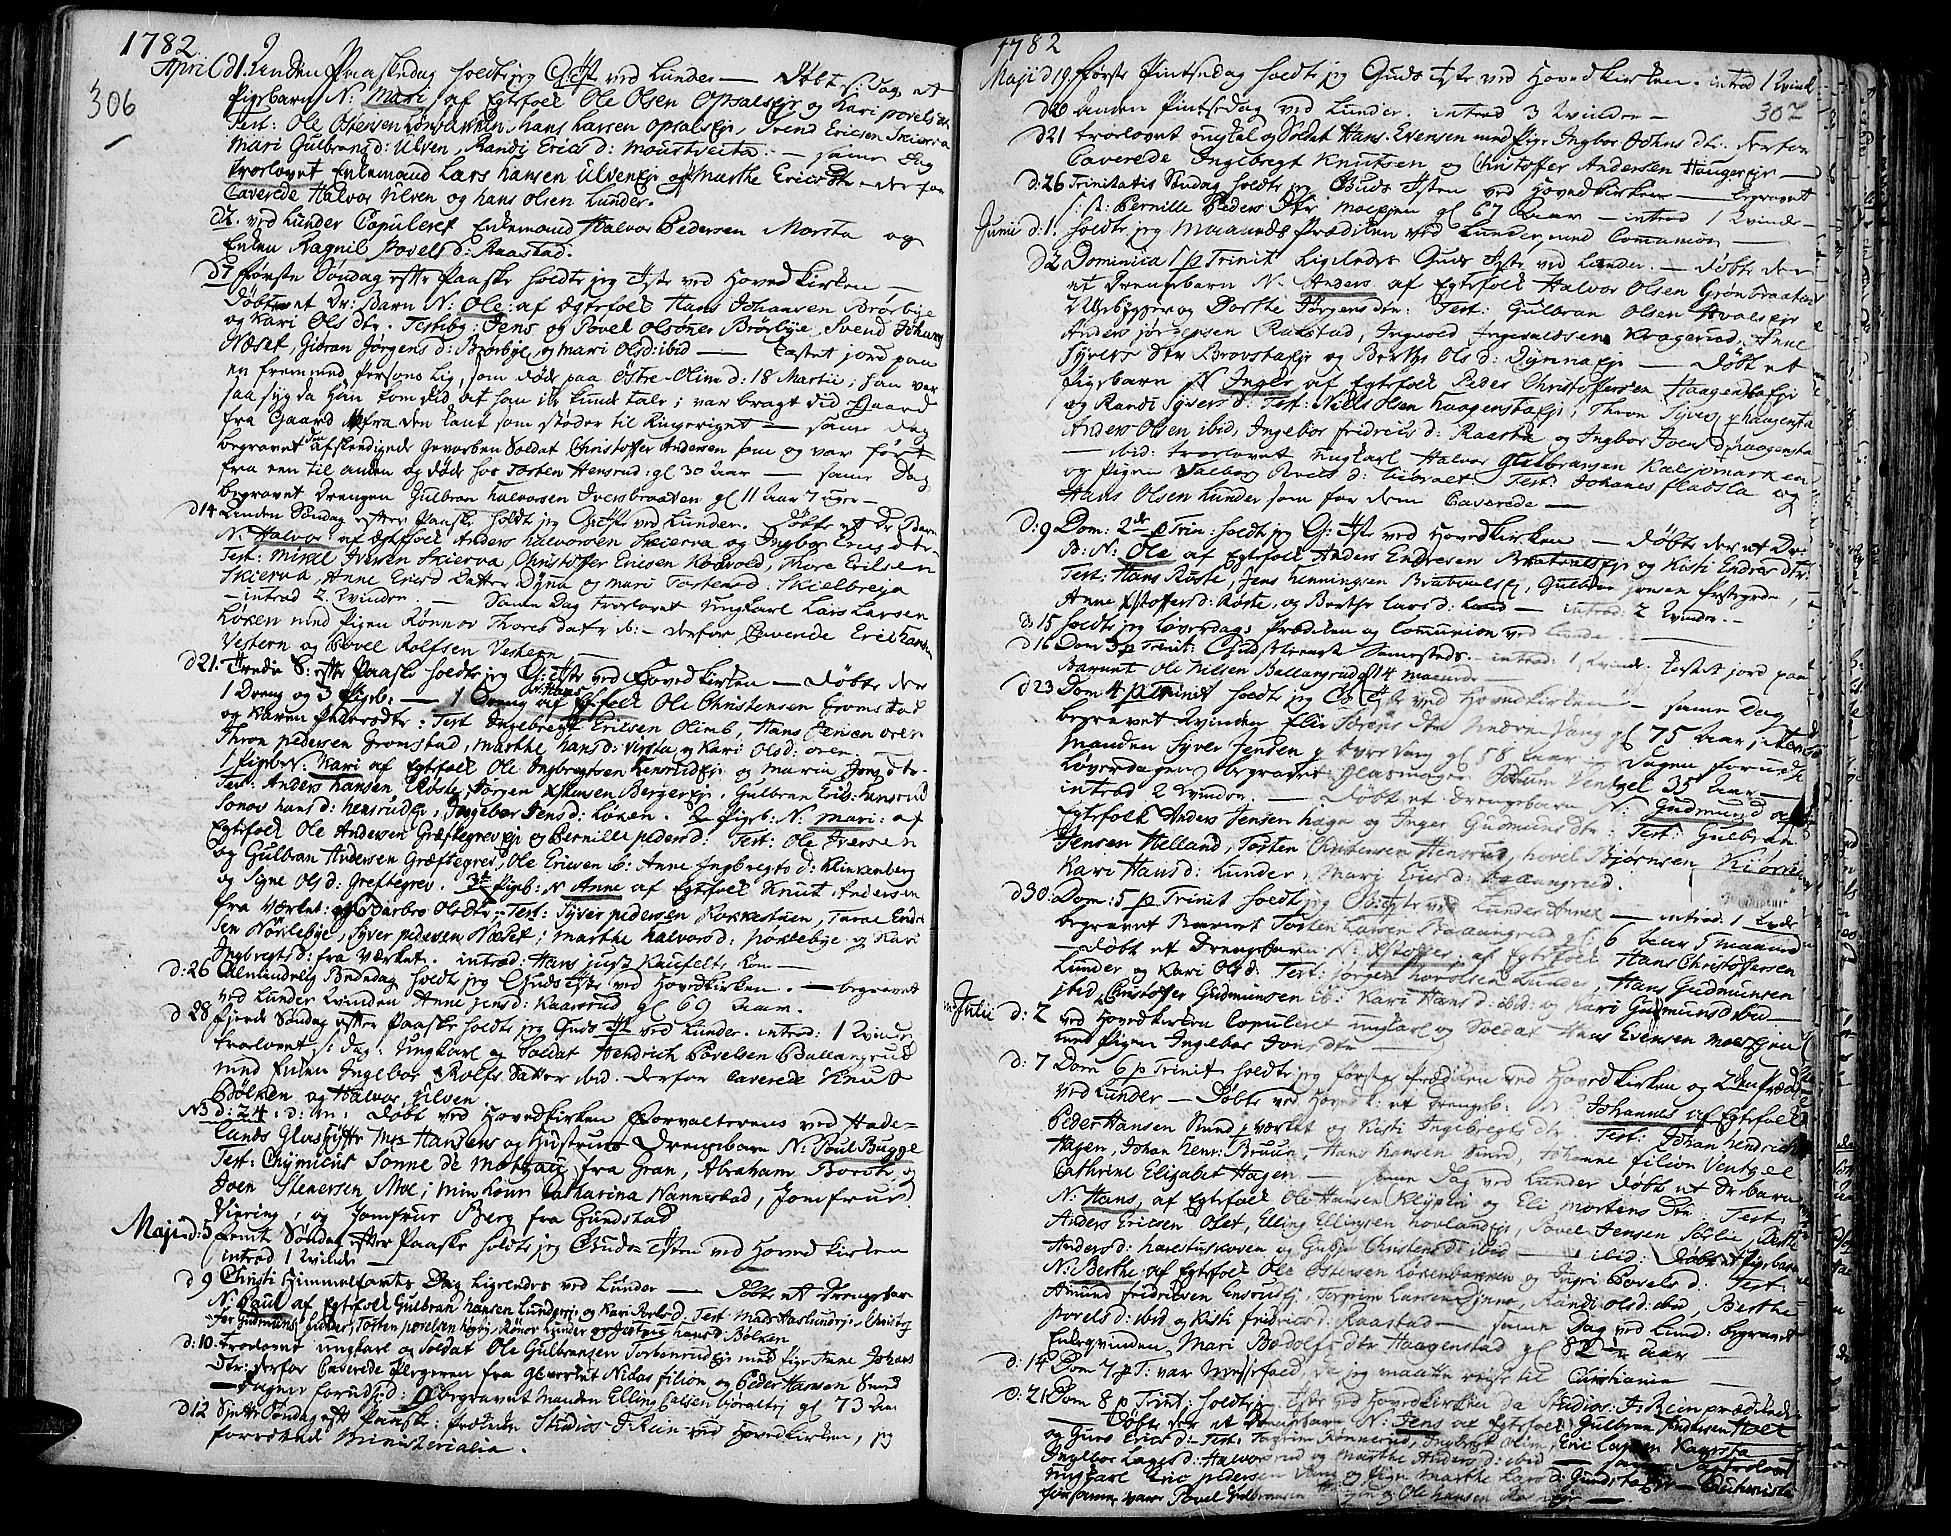 1782.
306
April d1. Anden Paaskedag holdt jeg G: Tste ved Lunder — Døbt s: Dag et
Pigebarn N: Mari af Egtefolk Ole Olsen Opsalsejr og Kari povelsdtr
Test: Ole Ostensen Lønbakken, hans Larsen opsalsejr, Svend Ericsen Skierva
Mari Gulbransd: Ulven, Randi Ericsd: Moustveita. — same Dag
trorlovet Enkemand Lars hansen Ulvenejr og Marthe Ericsdtr — derfor
Caverede Halvor Ulven og hans olsen Lunder.
d2. ved Lunder Copuleret Enkemand Halvor Pedersen Morsta og
Enken Ragnil povelsd: Raastad.
d7 første Søndag efter Paaske holdt jeg Tste ved Hovedkirken —
Døbt et Dr: Barn N: Ole af Egtefolk Hans Johansen Brørbye
og Kari Olsdtr. Testibg: Jens og Povel olsøner Brørbye, Svend Johans
Næset, Gioran Jørgensd: Brørbye og mari Olsd: ibid — Castet jord paa
en fremmed Persons Lig, som døde paa Østre-Olim d: 18 Martii; han var
saa syg da han kom did at han ik kunde tale; var bragt did Gaard
fra Gaard fra den kant som støder til Ringeriget — same Dag
begravet den afskendigede Gevorben Soldat Christoffer Andersen som og var ført
fra enn til anden og døde hos Tosten Hensrud: gl 30 Aar — same Dag
begravet Drengen Gulbran halvorsen Iversbraaten gl 11 Aar 7 uger —
d14 Anden Søndag efter Paaske holdt jeg G: Tste ved Lunder. Døbte et Dr: Barn
N: Halvor af Egtefolk Anders halvorsen Skierva og Ingebor Ericsdtr —
Test: Mikkel Iversen Skierva, Christoffer Ericsen Rodvold, Thore Erichsen
Skierva, Anne Ericsd Datter Dyna og mari Tostensd: Skielbreja
— introd 2 Qvinder. — Same Dag trorlovet ungkarl Lars Larsen
Løken med Pigen Rønnov Thoresdatr ib: — derfor Caverede Eric hansen
Vestern og Povel Rolfsen Vestern —
d21. Tredie S: efter Paaske holdt jeg G: Tste ved Hovedkirken — Døbte der
1 Dreng og 3 Pigb: — 1 Dreng N: Hans af Egtefolk Ole Christensen Gromstad
og Karen Pedersdtr: Test Ingebregt Ericsen Olimb, Hans Jensen oren
Thron pedersen Gromstad, Marthe hansd: versta og Kari Olsd: oren —
1 Pigb: N: Kari af Egtefolk Ole Ingbregtsen Hensrudejr og Maria Jensdtr.
Test: Anders hansen Røste, Jørgen Xstensen Bergerejr, Gulbran Erichs: hensrud
Sonov hansd: hensrudejr, Ingebor Jensd: Løken. 2 Pigb: N: Mari: af
Egtefolk Ole Andersen Græftegrevejr og Pernille pedersd: Test: Ole Iversen
og Gulbran Andersen Græftegrev, Ole Ericsen ib: Anne Ingbregtsd: Klinkenberg
og Signe Olsd: greftegrev. 3de Pigb: N: Anne af Egtefolk Knut Andersen
fra værket: og Barbro Olsdtr: Test: Syver pedersen Rokkestuen, Tarae Eric
sen Nøklebye, Syver pedersen Næset; Marthe halvorsd: Nøklebye og Kari
Ingbregtsd: fra Værket. introd: Hans just Kaufelts Kone —
d: 26 Almindelig Bededag holdt jeg Guds Tste ved Hovedkirken. — begravet
ved Lunder Qvinden Anne jensd: Kaarsrud gl 69 Aar.
d 28 fjerde Søndag efter Paaske holdt jeg Guds Tste ved Lunder. introd: 1 Qvind,
trorlovet s: dag: Ungkarl og Soldat Hendrich Povelsen Ballangrud
med Enken Ingebor Rolfs Datter ibid. derfor Caverede Knut
Bølken og Halvor Ulven
NB d: 24: d: M: Døbt ved Hovedkirken Forvalterens ved Hade-
lands Glashytte Mgr Hansens og Hustrues Drengebarn N: Poul Bugge
Test: Chymicus Sonne de Mottzau fra Gran, Abraham Borch og
Joen Stenersen Moe; min kone Catharina Nannestad, Jomfrue
Viering, og Jomfrue Berg fra Gundstad
Maji d: 5 femte Søndag efter Paaske holdt jeg Guds Tsten ved Hovedkirken
introd 1 Qvinde —
d 9 Christi Himmelfarts Dag ligeledes ved Lunder — Døbte et Drengebar
N: Paul af Egtefolk Gulbran hansen Lundersejr og Kari Test: Mads Christof
fer Gudmuns: Lunder; Tosten povelsen Rønov Lunder og hansd: Bølken
d: 10. Trorlovet ungkarl og Soldat Ole Gulbransen Torbenrudejr med Pige Anne Johans
dtr: derfor Caverede Plegeren fra Glverket Niclas filion og Peder Hansen Smed
— Dagen forud begravet Manden Elling gl 73 Aar
d12 Sjette Søndag eft Paaske: prædikede Studios F Rein ved Hovedkirken, jeg
forrettede Ministerialia.
1782
307
Maji d 19 første Pintsedag holdt jeg Guds Tste ved Hovedkirken. introd 1 Qvind
d20 Anden Pintsedag ved Lunder. introd 3 Qvinder —
d21 trorlovet ungkal og Soldat Hans Evensen med Pige Ingbor Johnsdtr. derfor
Caverede Ingebregt Knutsen og Christoffer Andersen Haugerejr —
d: 26 Trinitatis Søndag holdt jeg Guds Tsten ved Hovedkirken — begravet
s: D: Pernille Pedersdtr Moeejen gl 67 Aar — introd 1 Qvinde —
Junii d: 1. holdt jeg Maaneds Prædiken ved Lunder med Comunion —
d2 Dominica 1 p Trinit ligeledes Guds Tste ved Lunder. — Døbte der
et Drengebarn N: Anders af Egtefolk Halvor Olsen Grønbraaten
Udebygger og Dorthe Jørgensdtr: Test: Gulbran Olsen Hvalsejr
Anders jørgensen Rakstad, Ingevold Ingevoldsen Kragerud, Anne
Syversdtr Brovstaejr og Berthe Olsd: Dynnaejr — Døbt et
Pigebarn N Inger af Egtefolk Peder Christoffersen Haagenstadejr
og Randi Syversd: Test: Niels Olsen haagenstadejr; Thron Syvers: haagensta
Anders Olsen ibid, Ingebor fridricsd: Raasta og Ingbor Joensd: haagensta
— ibid: trorlovet ungkarl Halvor Gulbransen Kalsjomarken
og Pigen Valborg Test: Johanes fladsla og
Hans Olsen Lunder som for dem Caverede —
d: 9 Dom: 2de p Trin: holdt jeg G: Tste ved Hovedkirken — Døbte der et Dr:
B: N: Ole af Egtefolk Anders Endresen og Kisti Endersdtr:
Test: Hans Røste, Jens henningsen Gulbran jensen
Anne Xstoffersd: Røste, og Berthe larsd: Lund — introd: 2 Qvinder. —
d 15 holdt jeg Løverdags Prædiken og Comunion ved Lunder. —
d16 Dom 3 p Trinit: Gudstieneste sammesteds. — introd: 1 Qvind: Castet jord paa
Barnet Ole Nilsen Ballangrud gl 14 Maaneder —
d 23 Dom 4 p Trinit holdt jeg G: Tste ved Hovedkirken — same Dag
begravet Qvinden Elie Vang gl 75 Aar, item
Manden Syver Jensen Vang gl 58 Aar — Dagen forud
Løverdagen begravet Glasmager Ventzel 35 Aar —
introd 2 Qvinder. — Døbt et Drengebarn N: Gudmund af
Egtefolk Anders Jensen haga og Inger Gudmunsdtr: Test: Gulbran
Jensen Helland, Tosten Christensen Hensrud, hovel Bjørnsen Kiørven
Kari Hansd: Lunder, Mari Ericsd: Ballangrud.
d30. Dom: 5 p Trinit holdt jeg G: Tste ved Lunder Annex — introd: 1 Qvinde
begravet Barnet Tosten Larsen Ballangrud gl: 6 Aar 5 Maaned
— Døbt et Drengebarn N: Xstoffer: af Egtefolk Hans Christoffersen
Lunder og Kari Olsd: Test: Jørgen Lunder, Hans Gudmunsen
ibid, Christoffer Gudmunsen ib: Kari Hansd: ibid: og Kari Gudmunsd ibid —
Julii d: 2 ved Hovedkirken Copuleret ungkarl og Soldat Hans Evensen Moeejen
med Pigen Ingebor Jonsdtr —
d: 7 Dom 6 p Trinit holdt jeg første Prædiken ved Hovedkirken og 2den Præd
ved Lunder — Døbte ved Hovedk: et Drengeb: N: Johannes af Egtefolk
Peder Hansen Smed p værket og Kisti Ingebregtsdtr Test: Johan hendrich
Hagen, Johan Henr: Bruun, Hans hansen Smed, Johanne filion Ventzel
Cathrine Elizabet Hagen — same Dag ved Lunder Døbt et Drbarn
N: Hans af Egtefolk Ole Hansen Klypen og Eli Mortensdtr: Test:
Anders Ericsen Olet, Elling Ellingsen hovlandejr, Povel Jensen Sørlie, Berthe
Andersd: harestuskoven og Gubjør Christensdtr ibid — ibid: Døbt et Pigebarn
N: Berthe: af Egtefolk Ole Ostensen Løkenbakken og Ingri Povelsd: Test:
Amund fridricsen Ensrudejr, Torgrim Larsen Dynna, Randi Olsd: ibid, Berthe
povelsd: ibid og Kisti fridricsd: Raastad — same Dag ved Lund: begravet
Enkeqvinden Mari Bodolfsdtr Haagenstad gl 82 Aar —
d: 14 Dom 7 p T: var Messefald, da jeg maatte rejse til Christiania —
d: 21 Dom 8 p Trinit: holdt jeg Tste ved Hovedkirken da Studios: F: Rein prædikede.
— Døbt der et Drengebarn N: Jens af Egtefolk Gulbran Andersen
og Guro Ericsd: Test: Torgrim Rønnerud, Ingebregt Olim, Eric Larsen Kaarsta
Ingebor Larsd: Halvorsrud og Marthe Andersd: ibid — same Dag trorlovet
ungkarl Eric pedersen Vang og Pigen Marthe Larsd: Gundstadejr —
for same vare Povel Gulbransen og Ole hansen